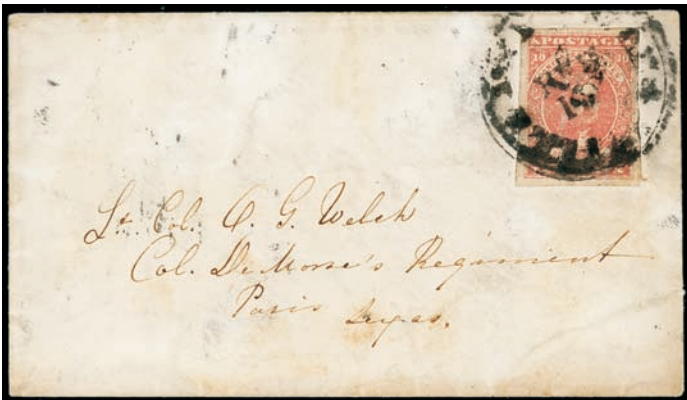 POSTAGE
10 10
Lt. Col. O. G. Welch
Col. De Morse's Regiment
Paris
Texas.